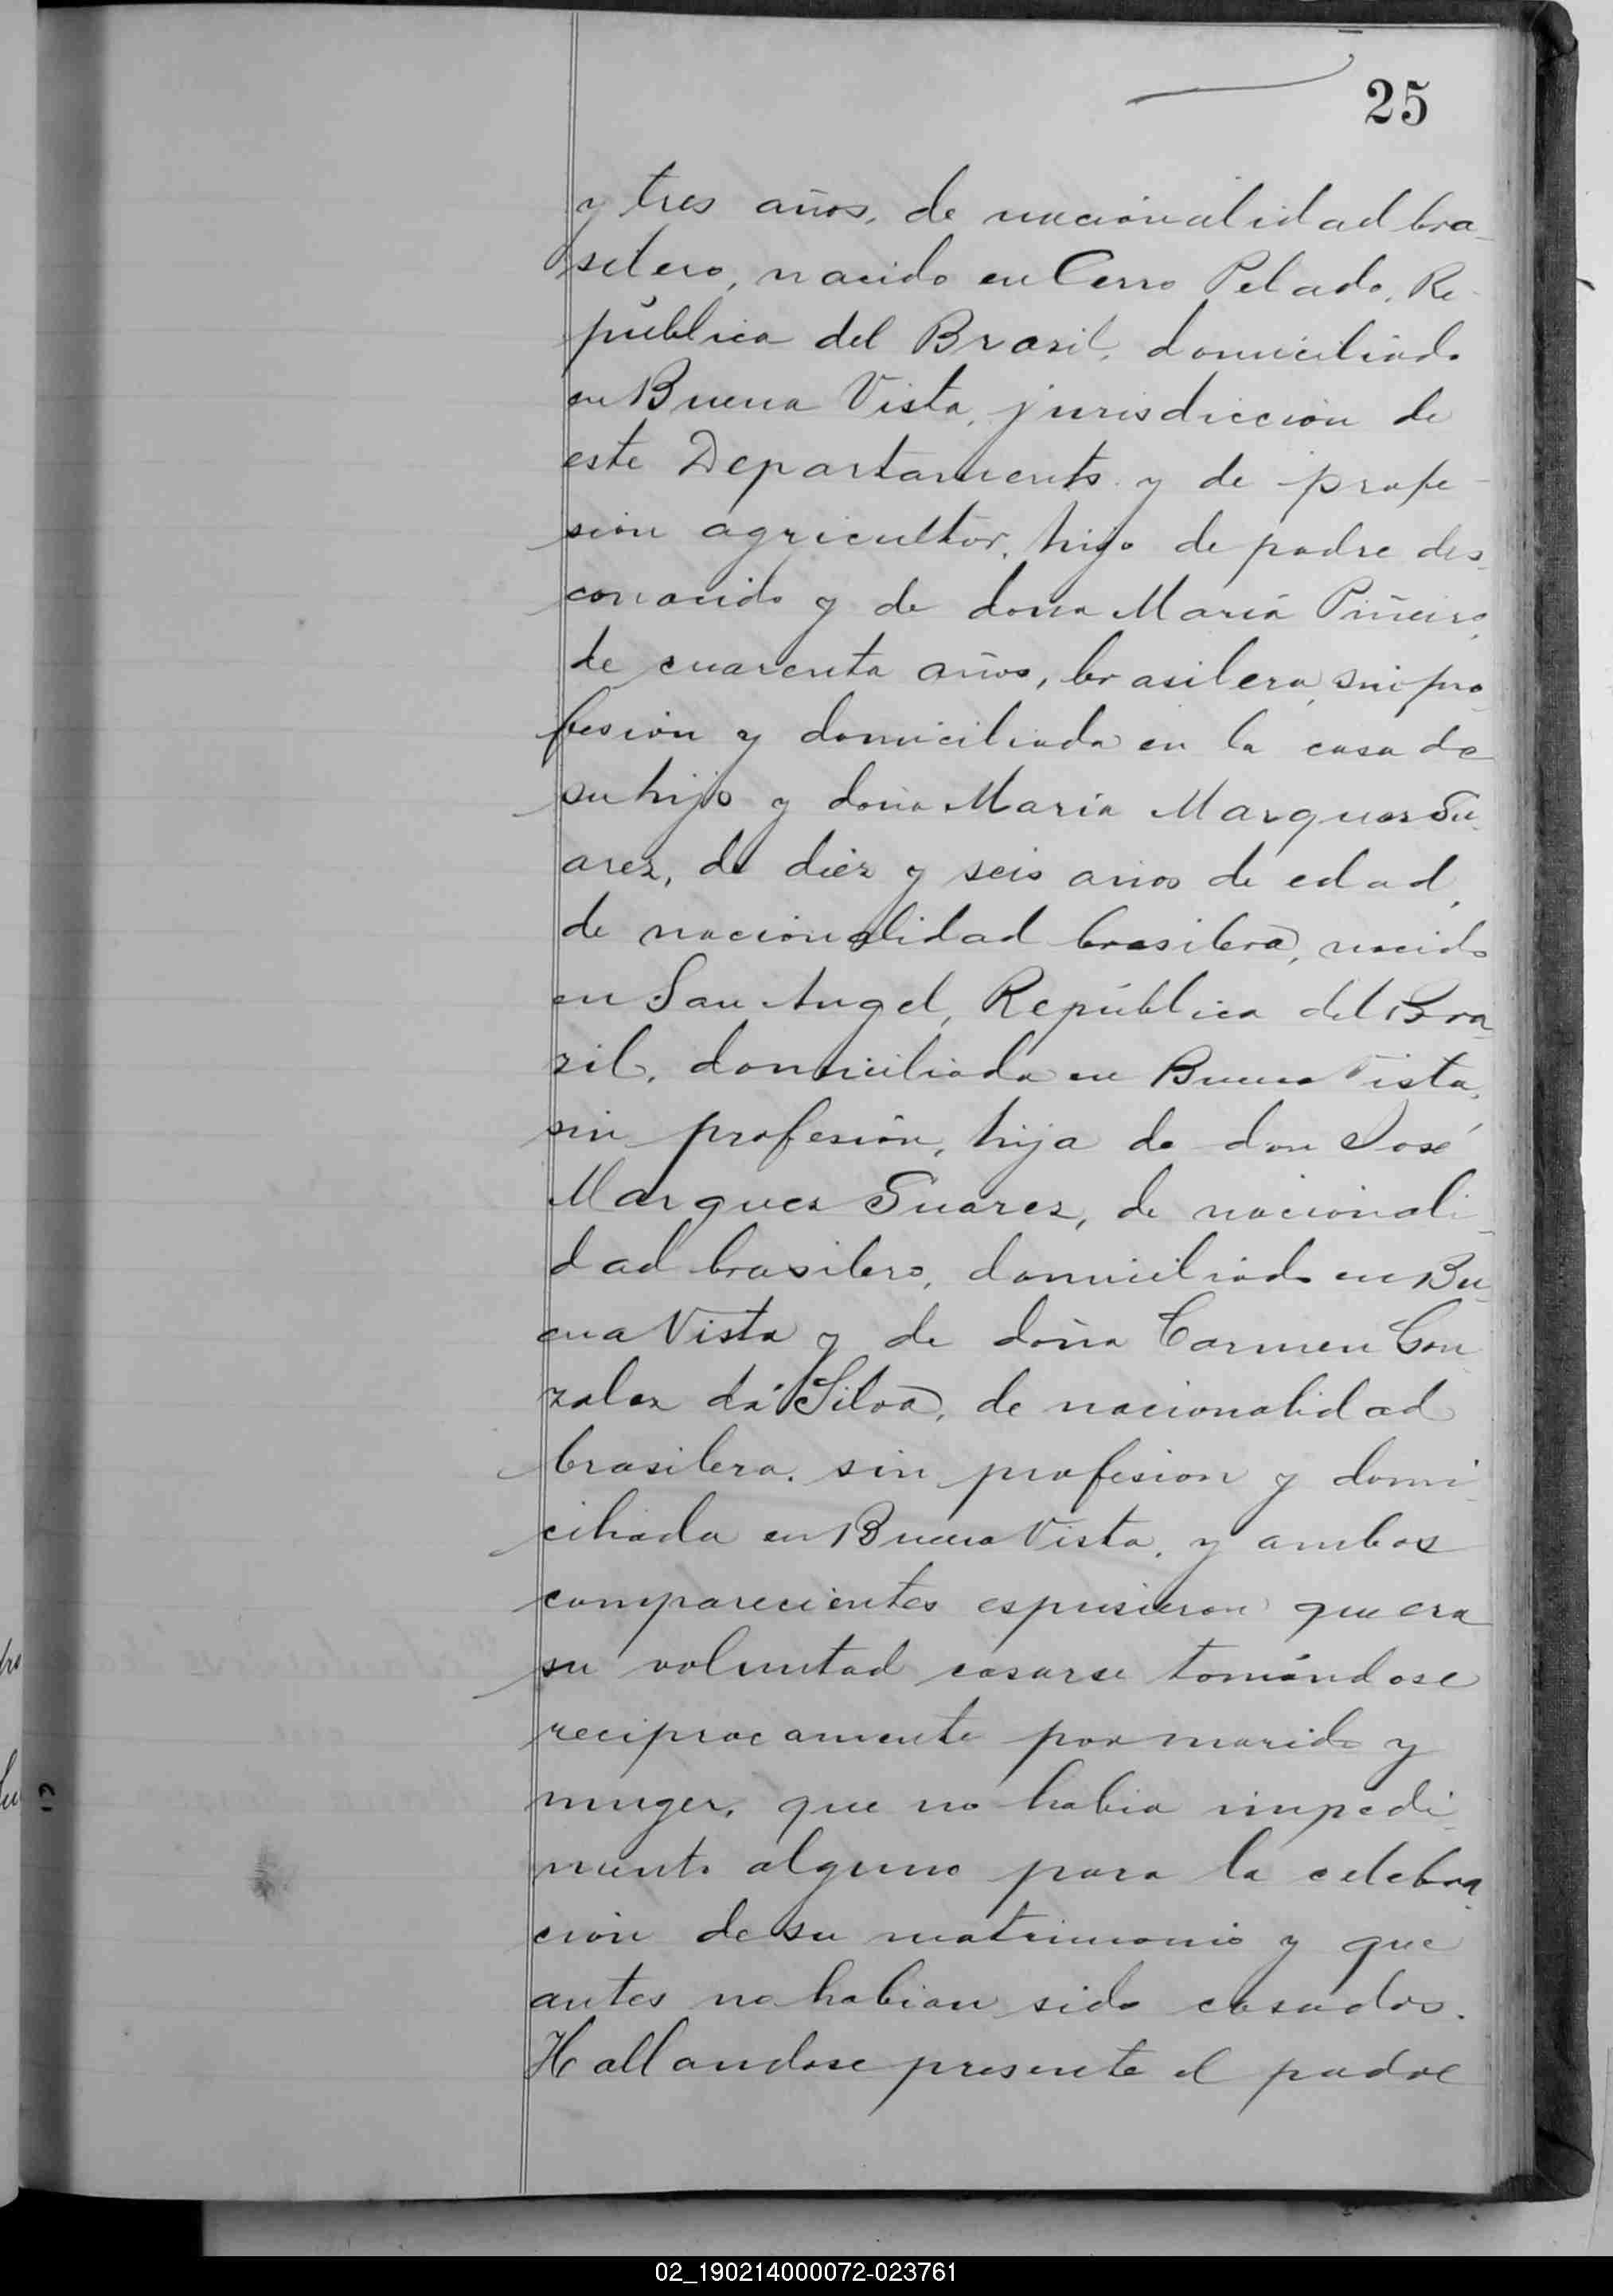 25
y tres años, de nacionalidad bra-
silero, nacido en Cerro Pelado, Re-
pública del Brasil, domiciliado
en Buena Vista, jurisdicción de
este Departamento y de profe-
sión agricultor, hijo de padre des-
conocido y de doña María Piñeiro,
de cuarenta años, brasilera, sin pro-
fesión y domiciliada en la casa de
su hijo y doña María Marques Su-
arez, de diez y seis años de edad,
de nacionalidad brasilera, nacida
en San Angel, República del Bra-
zil, domiciliada en Buena Vista,
sin profesión, hija de don José
Marques Suarez, de nacionali-
dad brasilero, domiciliado en Bu-
ena Vista y de doña Carmen Gon-
zalez dá Silva, de nacionalidad
brasilera, sin profesion y domi-
ciliada en Buena Vista, y ambos
comparecientes espusieron que era
su voluntad casarse tomándose
reciprocamente por marido y
muger, que no habia impedi-
mento alguno para la celebra-
ción de su matrimonio y que
antes no habian sido casados.
Hallandose presente el padre
02_190214000072-023761